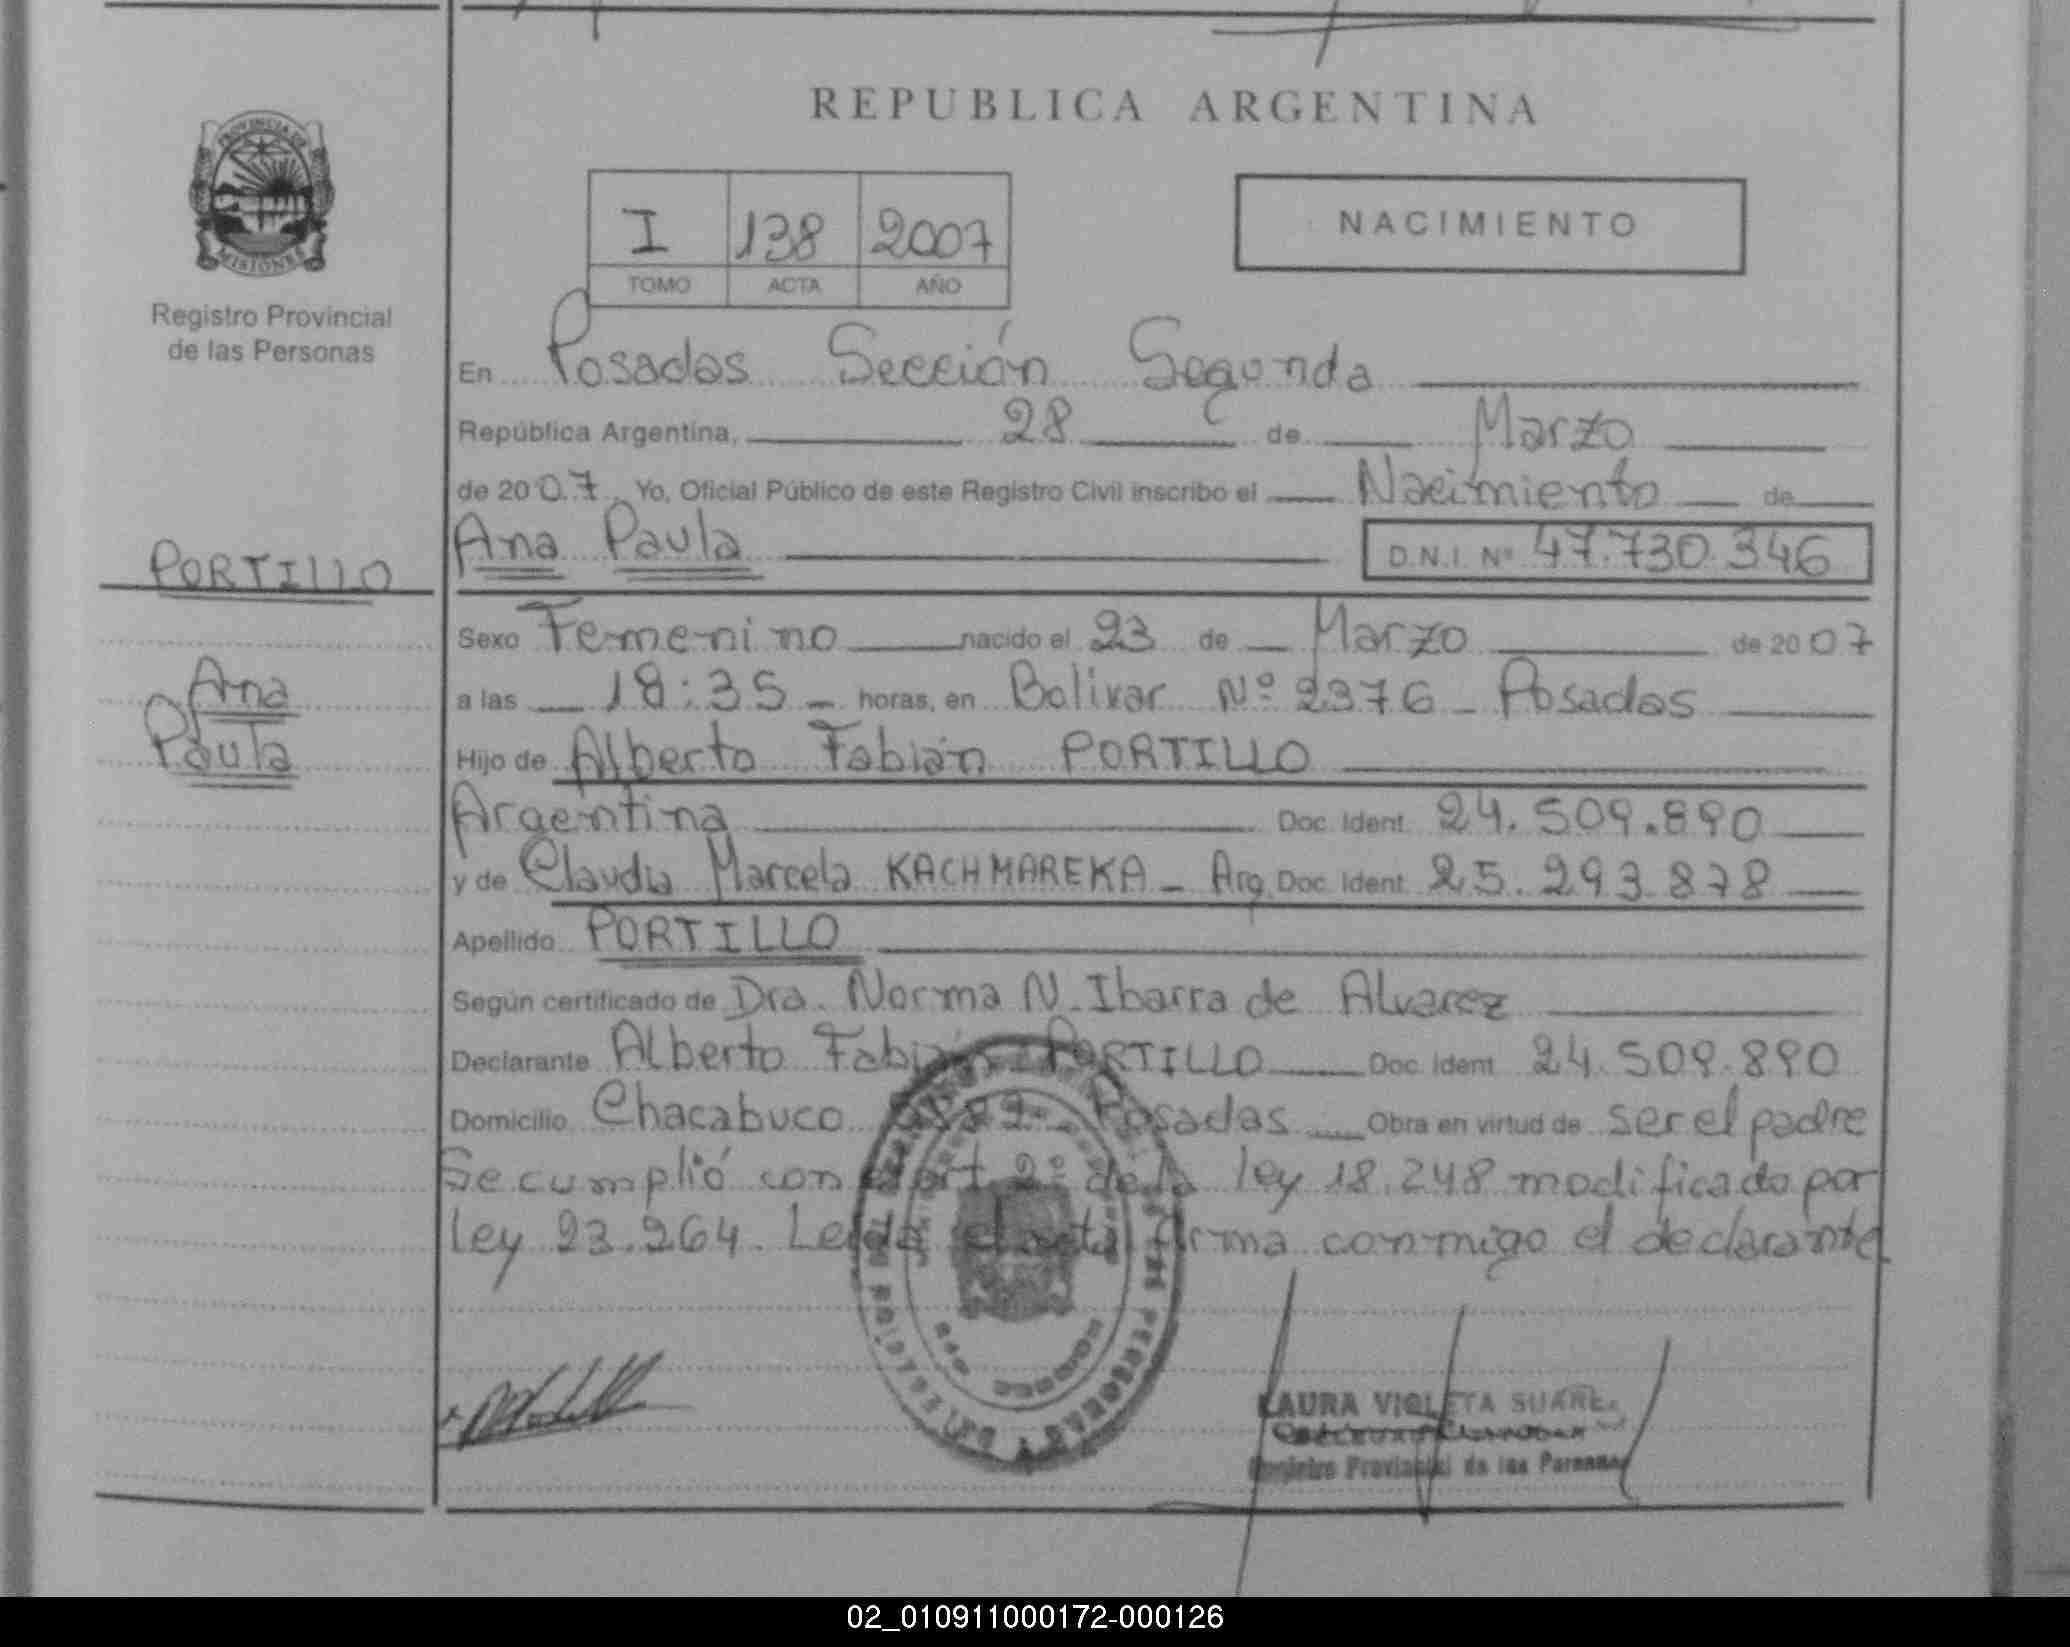 REPUBLICA ARGENTINA
PROVINCIA DE
MISIONES
Registro Provincial
de las Personas
I 138 2007
TOMO ACTA AÑO
NACIMIENTO
En Posadas Sección Segunda
República Argentina, 28 de Marzo
de 2007 Yo, Oficial Público de este Registro Civil inscribo el Nacimiento de
Ana Paula D.N.I. Nº 47.730.346
PORTILLO
Ana
Paula
Sexo Femenino nacido el 23 de Marzo de 2007
a las 18:35 - horas, en Bolivar Nº 2376 - Posadas
Hijo de Alberto Fabián PORTILLO
Argentina Doc. Ident. 24.509.890
y de Claudia Marcela KACHMAREKA - Arg. Doc. Ident. 25.293.878
Apellido PORTILLO
Según certificado de Dra. Norma N. Ibarra de Alvarez
Declarante Alberto Fabián PORTILLO Doc. Ident. 24.509.890
Domicilio Chacabuco Posadas Obra en virtud de ser el padre
Se cumplió con el art 2º de la ley 18.248 modificado por
ley 23.264. Leida el acta firma conmigo el declarante
LAURA VIOLETA SUAREZ
Registro Provincial de las Personas
02_010911000172-000126